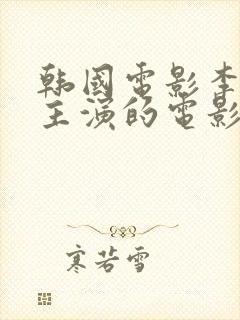 韩國電影李
主演的電影
寒若雪